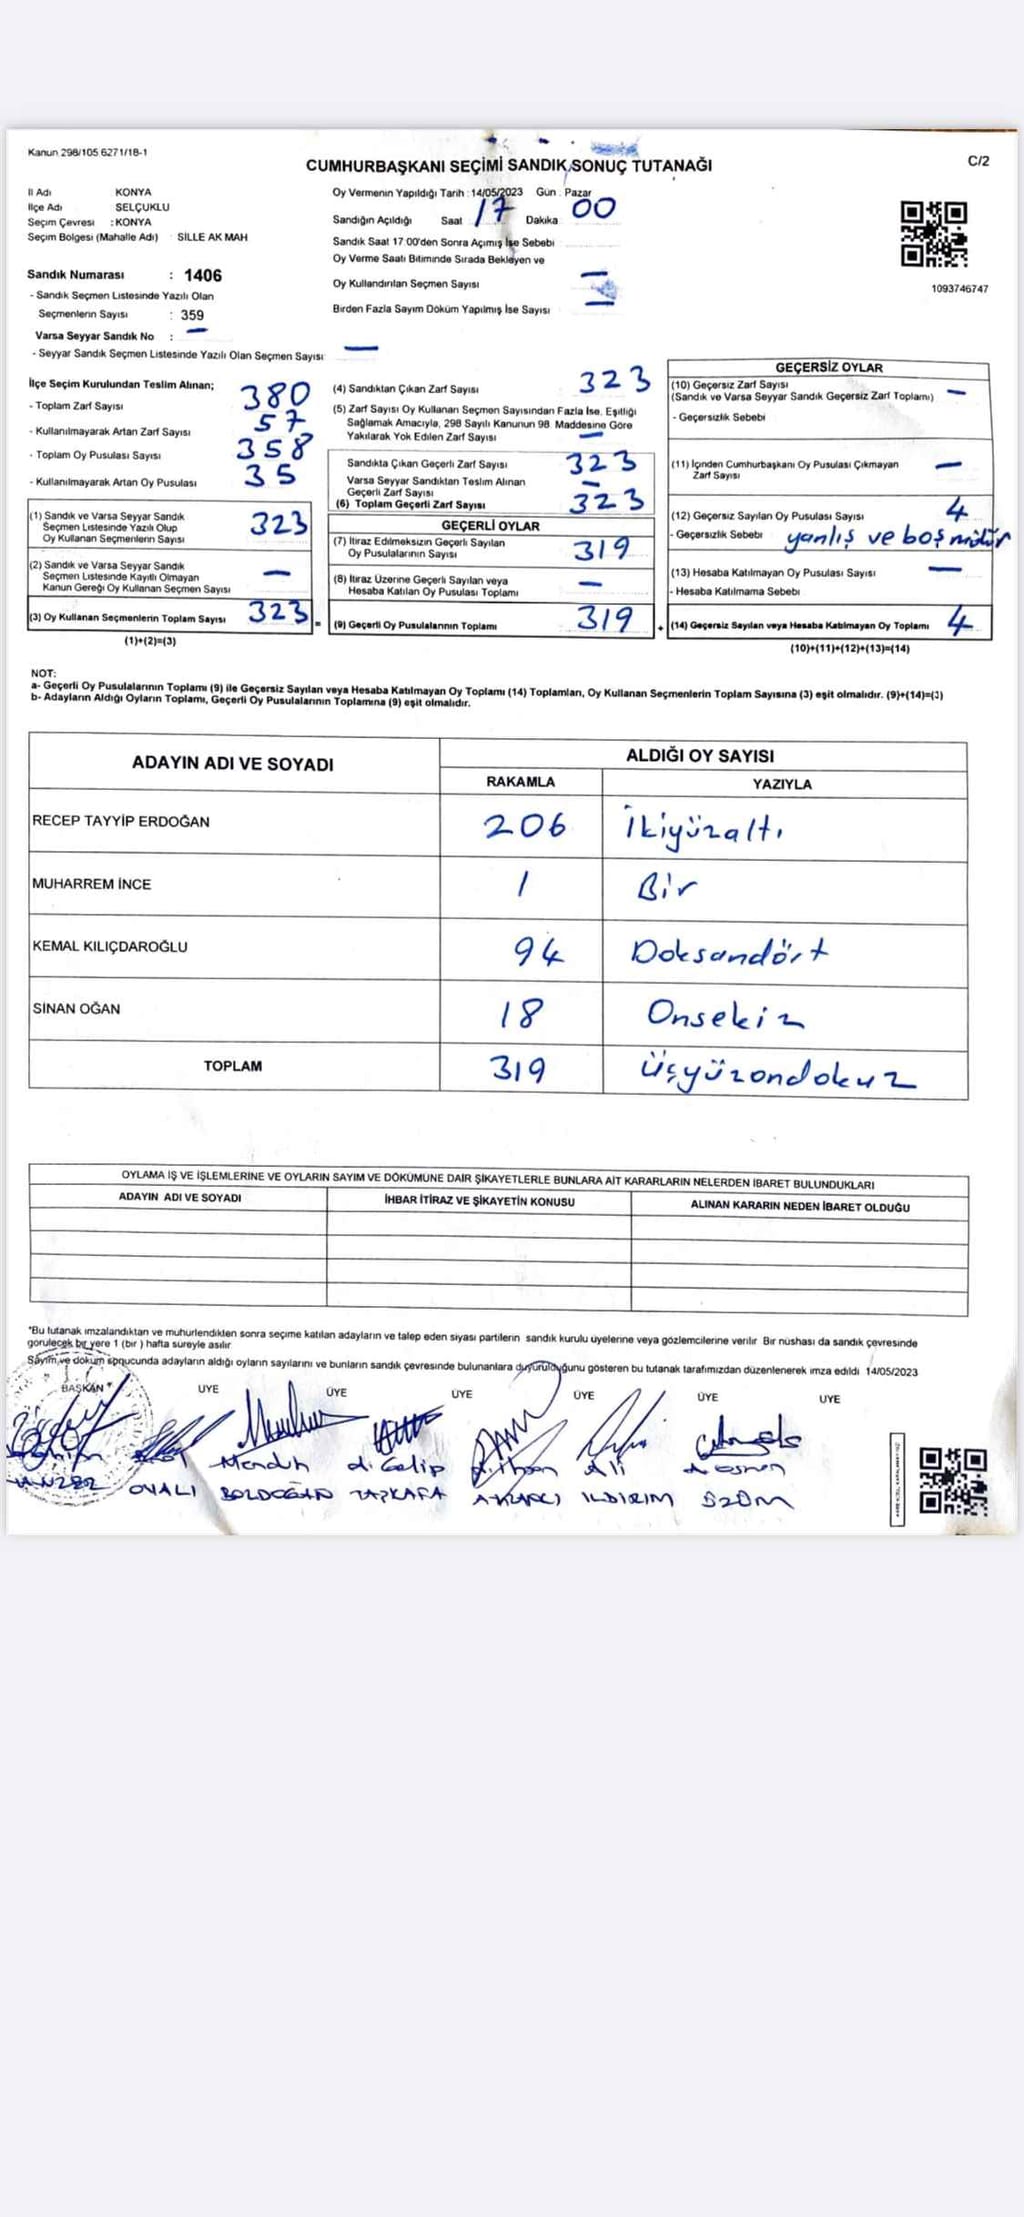 Kanun 298/105 6271/18-1
CUMHURBAŞKANI SEÇİMİ SANDIK SONUÇ TUTANAĞI
C/2
İl Adı KONYA
İlçe Adı SELÇUKLU
Seçim Çevresi : KONYA
Seçim Bölgesi (Mahalle Adı) : SİLLE AK MAH
Oy Vermenin Yapıldığı Tarih : 14/05/2023 Gün : Pazar
Sandığın Açıldığı Saat 17 Dakika 00
Sandık Saat 17 00'den Sonra Açımış İse Sebebi
Oy Verme Saati Bitiminde Sırada Bekleyen ve
Oy Kullandırılan Seçmen Sayısı —
Birden Fazla Sayım Döküm Yapılmış İse Sayısı —
1093746747
Sandık Numarası : 1406
- Sandık Seçmen Listesinde Yazılı Olan
Seçmenlerin Sayısı : 359
Varsa Seyyar Sandık No : —
- Seyyar Sandık Seçmen Listesinde Yazılı Olan Seçmen Sayısı: —
İlçe Seçim Kurulundan Teslim Alınan;
- Toplam Zarf Sayısı 380
- Kullanılmayarak Artan Zarf Sayısı 57
- Toplam Oy Pusulası Sayısı 358
- Kullanılmayarak Artan Oy Pusulası 35
(1) Sandık ve Varsa Seyyar Sandık
Seçmen Listesinde Yazılı Olup
Oy Kullanan Seçmenlerin Sayısı 323
(2) Sandık ve Varsa Seyyar Sandık
Seçmen Listesinde Kayıtlı Olmayan
Kanun Gereği Oy Kullanan Seçmen Sayısı —
(3) Oy Kullanan Seçmenlerin Toplam Sayısı 323 =
(1)+(2)=(3)
(4) Sandıktan Çıkan Zarf Sayısı 323
(5) Zarf Sayısı Oy Kullanan Seçmen Sayısından Fazla İse, Eşitliği
Sağlamak Amacıyla, 298 Sayılı Kanunun 98 Maddesine Göre
Yakılarak Yok Edilen Zarf Sayısı —
Sandıkta Çıkan Geçerli Zarf Sayısı 323
Varsa Seyyar Sandıktan Teslim Alınan
Geçerli Zarf Sayısı —
(6) Toplam Geçerli Zarf Sayısı 323
GEÇERLİ OYLAR
(7) İtiraz Edilmeksizin Geçerli Sayılan
Oy Pusulalarının Sayısı 319
(8) İtiraz Üzerine Geçerli Sayılan veya
Hesaba Katılan Oy Pusulası Toplamı —
(9) Geçerli Oy Pusulalarının Toplamı 319 +
GEÇERSİZ OYLAR
(10) Geçersiz Zarf Sayısı
(Sandık ve Varsa Seyyar Sandık Geçersiz Zarf Toplamı) —
- Geçersizlik Sebebi
(11) İçinden Cumhurbaşkanı Oy Pusulası Çıkmayan
Zarf Sayısı —
(12) Geçersiz Sayılan Oy Pusulası Sayısı 4
- Geçersizlik Sebebi yanlış ve boş mühür
(13) Hesaba Katılmayan Oy Pusulası Sayısı —
- Hesaba Katılmama Sebebi
(14) Geçersiz Sayılan veya Hesaba Katılmayan Oy Toplamı 4
(10)+(11)+(12)+(13)=(14)
NOT:
a- Geçerli Oy Pusulalarının Toplamı (9) ile Geçersiz Sayılan veya Hesaba Katılmayan Oy Toplamı (14) Toplamları, Oy Kullanan Seçmenlerin Toplam Sayısına (3) eşit olmalıdır. (9)+(14)=(3)
b- Adayların Aldığı Oyların Toplamı, Geçerli Oy Pusulalarının Toplamına (9) eşit olmalıdır.
ADAYIN ADI VE SOYADI
ALDIĞI OY SAYISI
RAKAMLA YAZIYLA
RECEP TAYYİP ERDOĞAN 206 İkiyüzaltı
MUHARREM İNCE 1 Bir
KEMAL KILIÇDAROĞLU 94 Doksandört
SİNAN OĞAN 18 Onsekiz
TOPLAM 319 Üçyüzondokuz
OYLAMA İŞ VE İŞLEMLERİNE VE OYLARIN SAYIM VE DÖKÜMÜNE DAİR ŞİKAYETLERLE BUNLARA AİT KARARLARIN NELERDEN İBARET BULUNDUKLARI
ADAYIN ADI VE SOYADI İHBAR İTİRAZ VE ŞİKAYETİN KONUSU ALINAN KARARIN NEDEN İBARET OLDUĞU
*Bu tutanak imzalandıktan ve mühürlendikten sonra seçime katılan adayların ve talep eden siyasi partilerin sandık kurulu üyelerine veya gözlemcilerine verilir Bir nüshası da sandık çevresinde
görülecek bir yere 1 (bir ) hafta süreyle asılır
Sayım ve döküm sonucunda adayların aldığı oyların sayılarını ve bunların sandık çevresinde bulunanlara duyurulduğunu gösteren bu tutanak tarafımızdan düzenlenerek imza edildi 14/05/2023
BAŞKAN * ÜYE ÜYE ÜYE ÜYE ÜYE ÜYE
Ali
OVALI BOLDOĞAN TAŞKAFA ILDIRIM